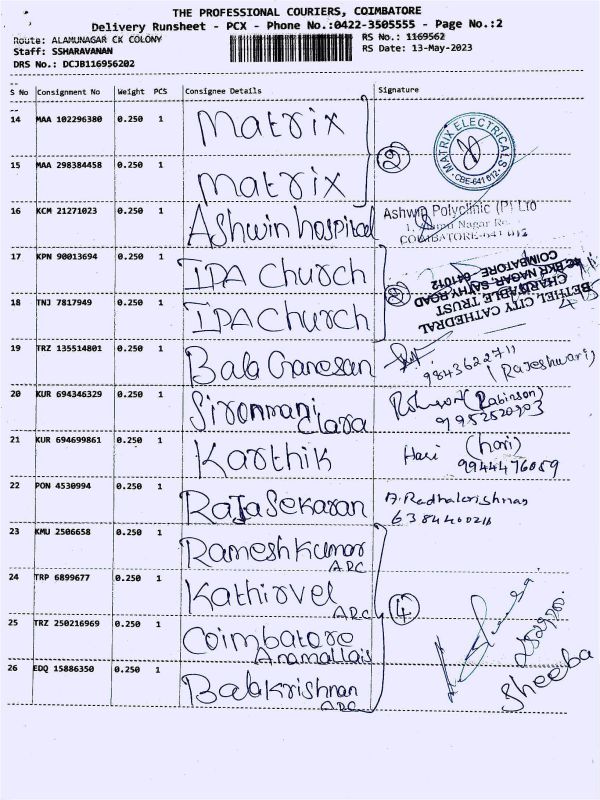 THE PROFESSIONAL COURIERS, COIMBATORE
Delivery Runsheet - PCX - Phone No.:0422-3505555 - Page No.:2
Route: ALAMUNAGAR CK COLONY
RS No.: 1169562
Staff: SSHARAVANAN
RS Date: 13-May-2023
DRS No.: DCJB116956202
S No Consignment No Weight PCS Consignee Details Signature
14 MAA 102296380 0.250 1 Matrix
2
MATRIX ELECTRICALS
CBE-641 012
15 MAA 298384458 0.250 1 Matrix
16 KCM 21271023 0.250 1 Ashwin hospital
Ashwin Polyclinic (P) Ltd
COIMBATORE-641 012
17 KPN 90013694 0.250 1 IPA Church
2
BETHEL CITY CATHEDRAL
CHARITABLE TRUST
BKR NAGAR, SATHY ROAD
COIMBATORE 641012
18 TNJ 7817949 0.250 1 IPA Church
19 TRZ 135514801 0.250 1 Bala Ganesan
9843622711
(Rajeshwari)
20 KUR 694346329 0.250 1 Sironmani Clara
(Rabinson)
9952520903
21 KUR 694699861 0.250 1 Karthik
Hari (hari)
9944476059
22 PON 4530994 0.250 1 RajaSekaran
A. Radhakrishnan
6384400211
23 KMU 2506658 0.250 1 Ramesh Kumar
ARC
24 TRP 6899677 0.250 1 Kathirvel
ARC
4
25 TRZ 250216969 0.250 1 Coimbatore
Anamallais
26 EDQ 15886350 0.250 1 Balakrishnan
ARC
Sheeba